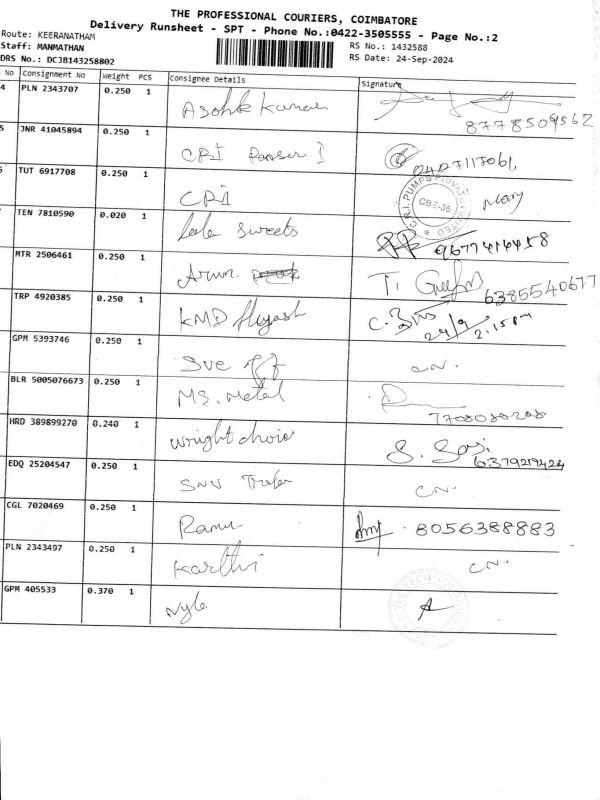 THE PROFESSIONAL COURIERS, COIMBATORE
Delivery Runsheet - SPT - Phone No.:0422-3505555 - Page No.:2
Route: KEERANATHAM
Staff: MANMATHAN
RS No.: 1432588
DRS No.: DCJB143258802
RS Date: 24-Sep-2024
No Consignment No Weight PCS Consignee Details Signature
4 PLN 2343707 0.250 1 Ashok Kumar
8778509562
5 JNR 41045894 0.250 1 CRI Pumps
TUT 6917708 0.250 1 CRI Mary
C.R.I. PUMPS PRIVATE LIMITED
CBE-35
TEN 7810590 0.020 1 lala sweets 9677414458
MTR 2506461 0.250 1 Arun
6385540677
TRP 4920385 0.250 1 KMD flyash
24/9 2.15pm
GPM 5393746 0.250 1 Sve CN.
BLR 5005076673 0.250 1 MS. Metal
7708080208
HRD 389899270 0.240 1 wright choic
EDQ 25204547 0.250 1 SNV CN.
CGL 7020469 0.250 1 Ramu 8056388883
PLN 2343497 0.250 1 Karthi CN.
GPM 405533 0.370 1 Nyle